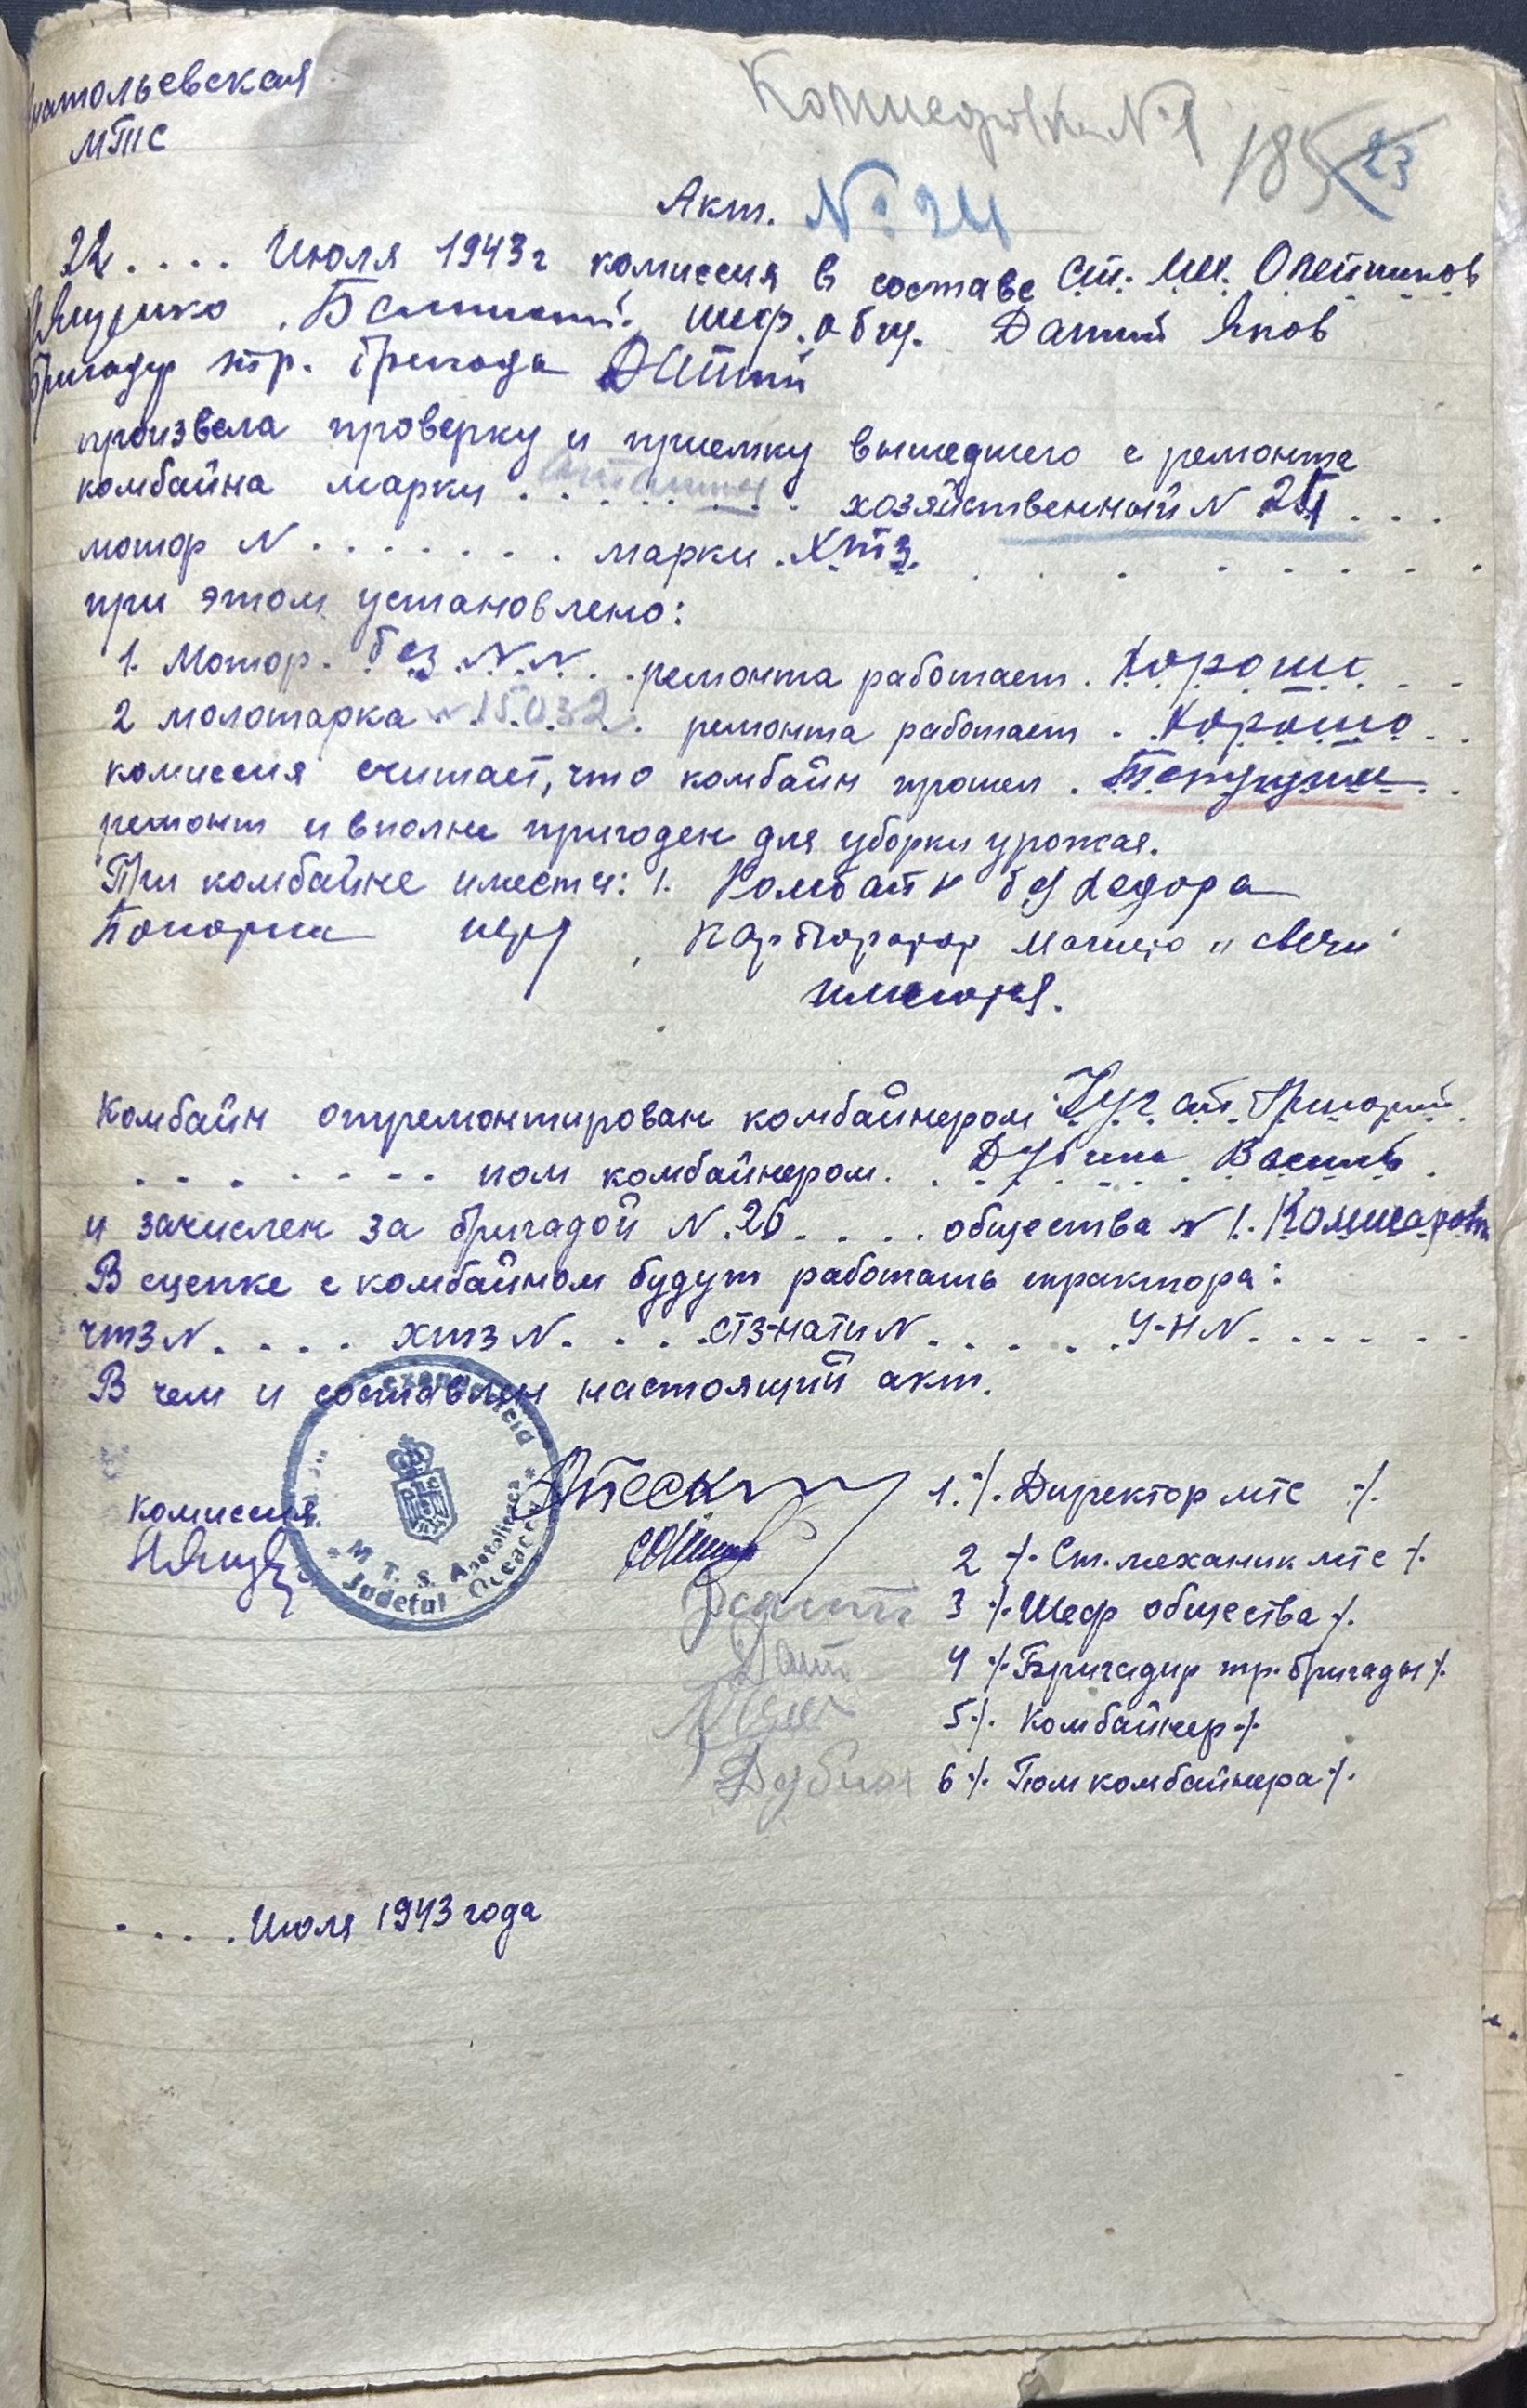 натольевская
МТС
№1
185 23
Акт. № 24
22 .... Июля 1943 г комиссия в составе Ст. Мех. Олейников
шеф. общ. Датий Яков
Бригадир тр. бригады Датий
произвела проверку и приемку вышедшего с ремонта
комбайна марки . . . . . . . хозяйственный N 24 . . .
мотор N . . . . . . . марки . ХТЗ . . . . . . . .
при этом установлено:
1. Мотор. без N N . . ремонта работает . Хорошо . .
2 молотарка N 15032 . ремонта работает . Хорошо . .
комиссия считает, что комбайн прошел . Текущий . .
ремонт и вполне пригоден для уборки урожая.
При комбайне имеется: 1. Комбайн без
нету , Карбюратор магнето и свечи
имеются.
Комбайн отремонтирован комбайнером Григорий
. . . . . . . . пом комбайнером . . Дубина Василь .
и зачислен за бригадой N . 26 . . . . общества N 1.
В сцепке с комбайном будут работать трактора:
ЧТЗ N . . . . ХТЗ N . . . . СТЗ-НАТИ N . . . . . У-Н N . . . . . .
В чем и составлен настоящий акт.
M. T. S. Anatolievca
Judetul Oceacov
комиссия
1. ·/. Директор МТС ·/.
2 ·/. Ст. механик МТС ·/.
3 ·/. Шеф общества ·/.
Дати 4 ·/. Бригадир тр. бригады ·/.
5 ·/. Комбайнер ·/.
Дубина 6 ·/. Помкомбайнера ·/.
. . . . Июля 1943 года